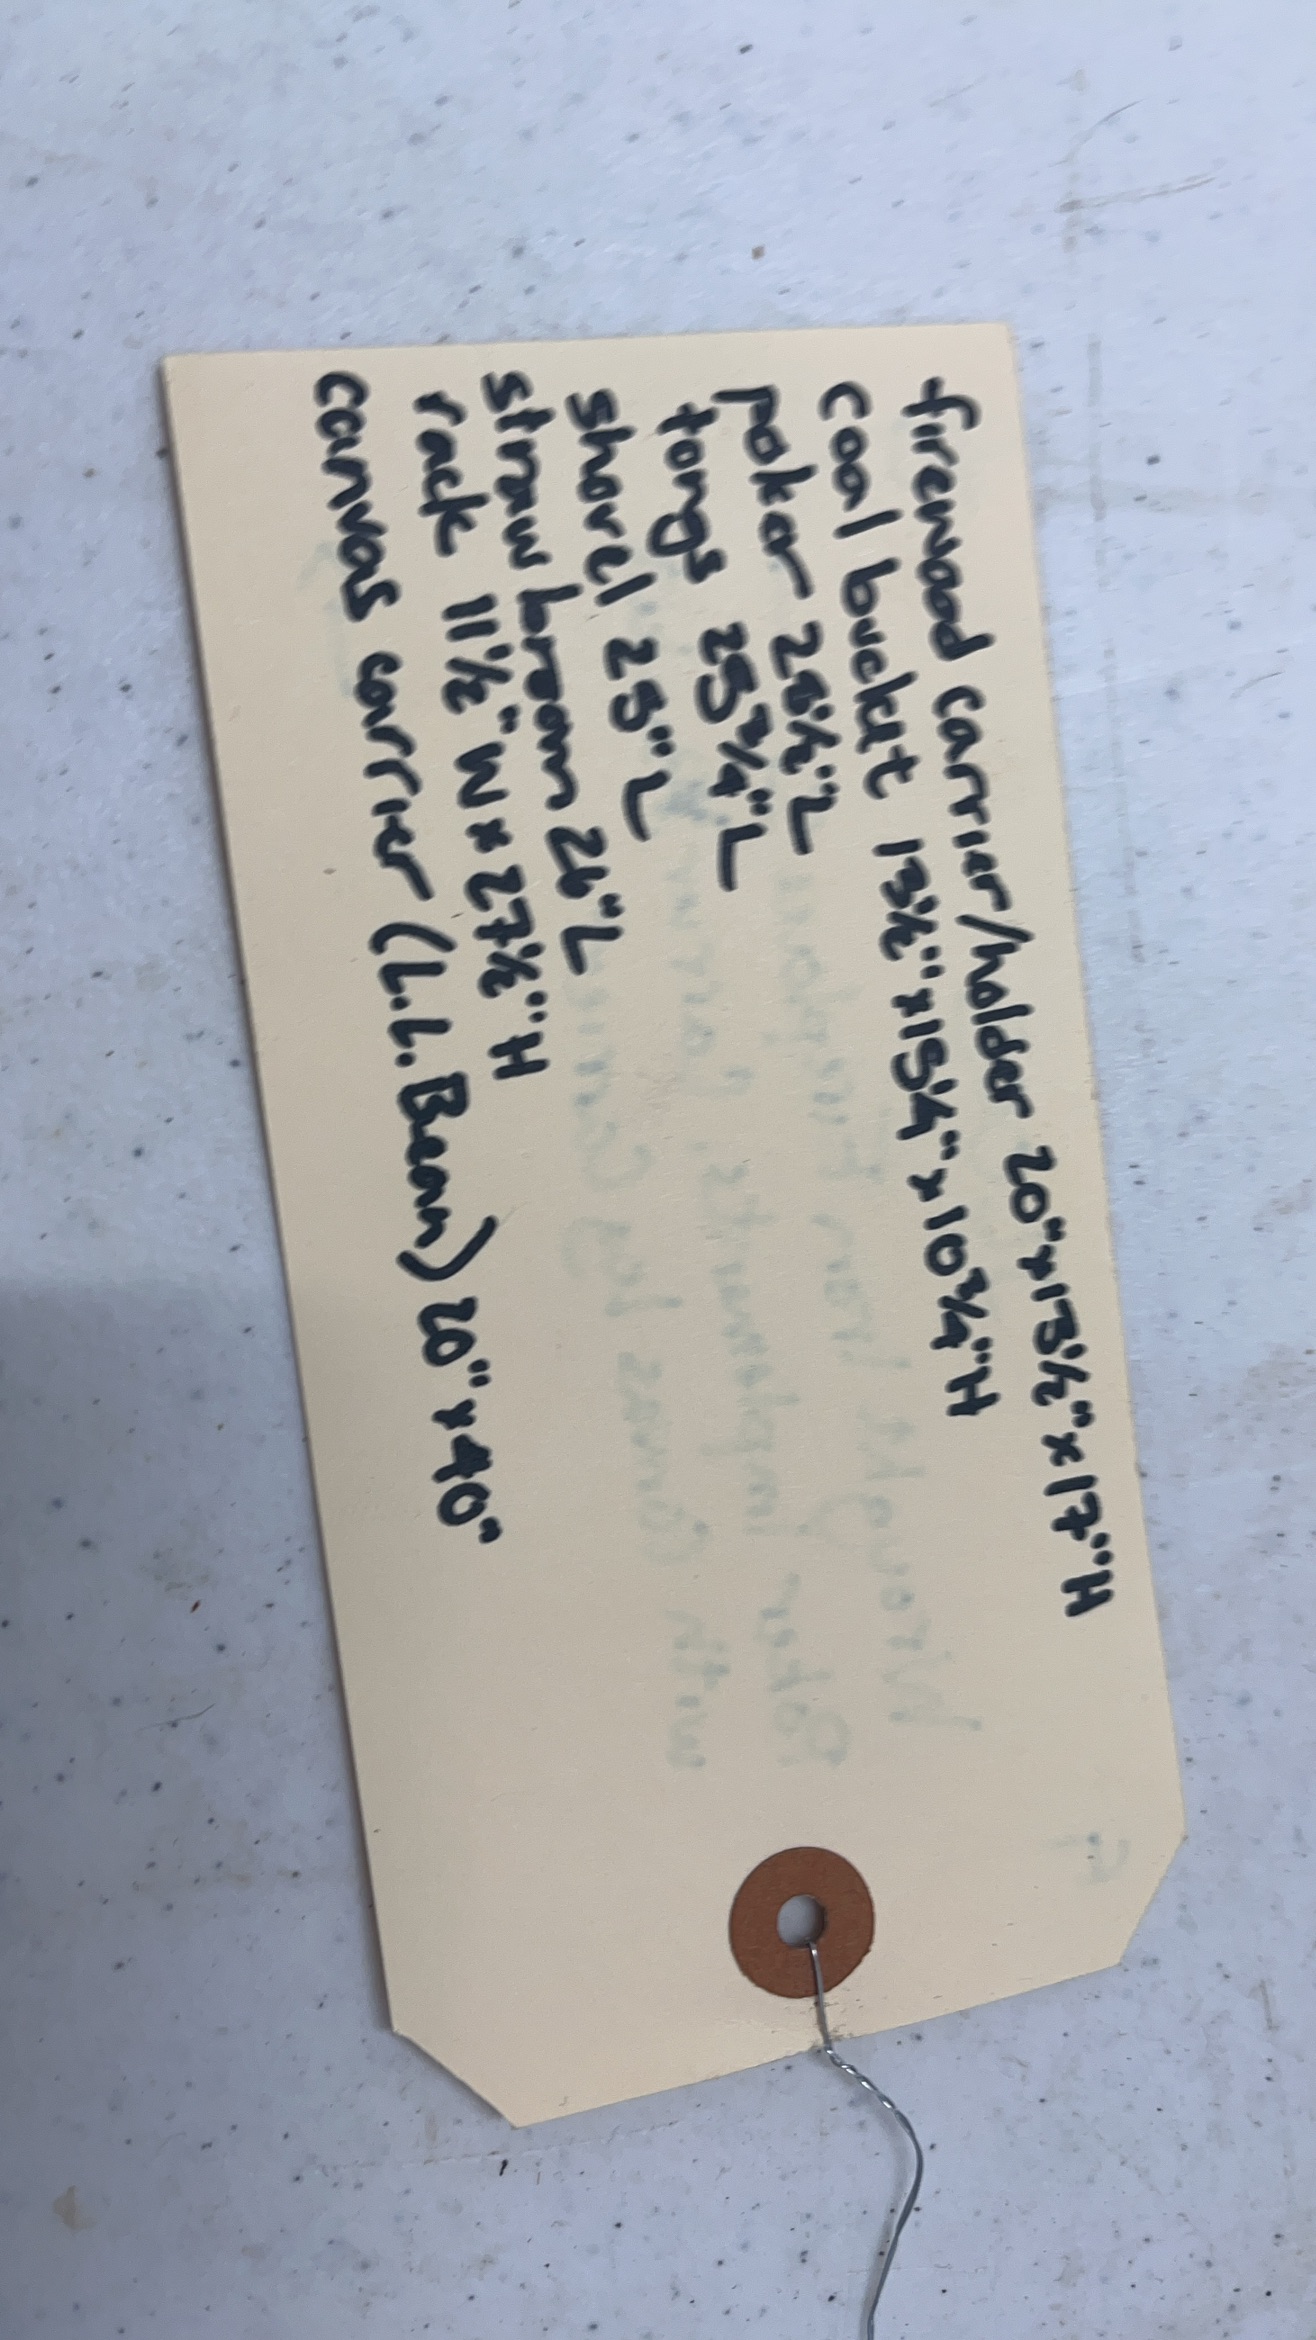 firewood carrier/holder 20" x 13½" x 17"H
coal bucket 13½" x 15¼" x 10¾"H
poker 26½"L
tongs 25¾"L
shovel 25"L
straw broom 26"L
rack 11½"W x 27½"H
canvas carrier (L.L. Bean) 20" x 40"